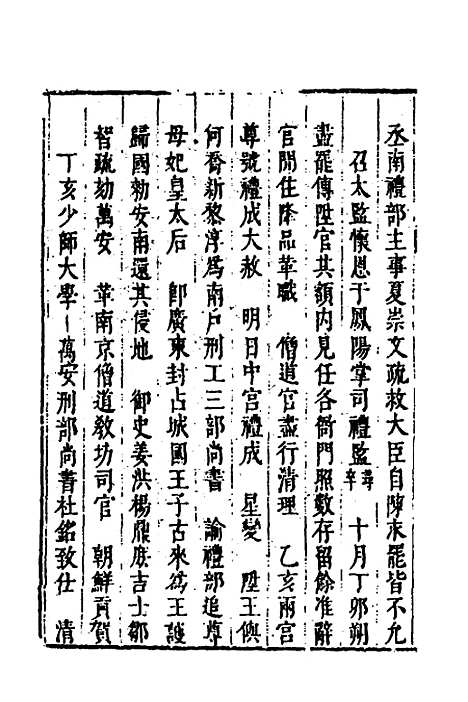 丞南禮部主事夏崇文疏救大臣自陳求罷皆不允
召太監懷恩于鳳陽掌司禮監尋卒　十月丁卯朔
盡罷傳陞官其額内見任各衙門照數存留餘准辭
官閒住降品革職　僧道官盡行清理　乙亥兩宫
尊號禮成大赦　明日中宫禮成　星變　陞王㒜
何喬新黎淳為南戶刑工三部尚書　諭禮部追尊
母妃皇太后　卽廣東封占城國王子古來為王護
歸國勑安南還其侵地　御史姜洪楊鼐庶吉士鄒
智疏劾萬安　革南京僧道敎坊司官　朝鮮貢賀
丁亥少師大學士萬安刑部尚書杜銘致仕　清